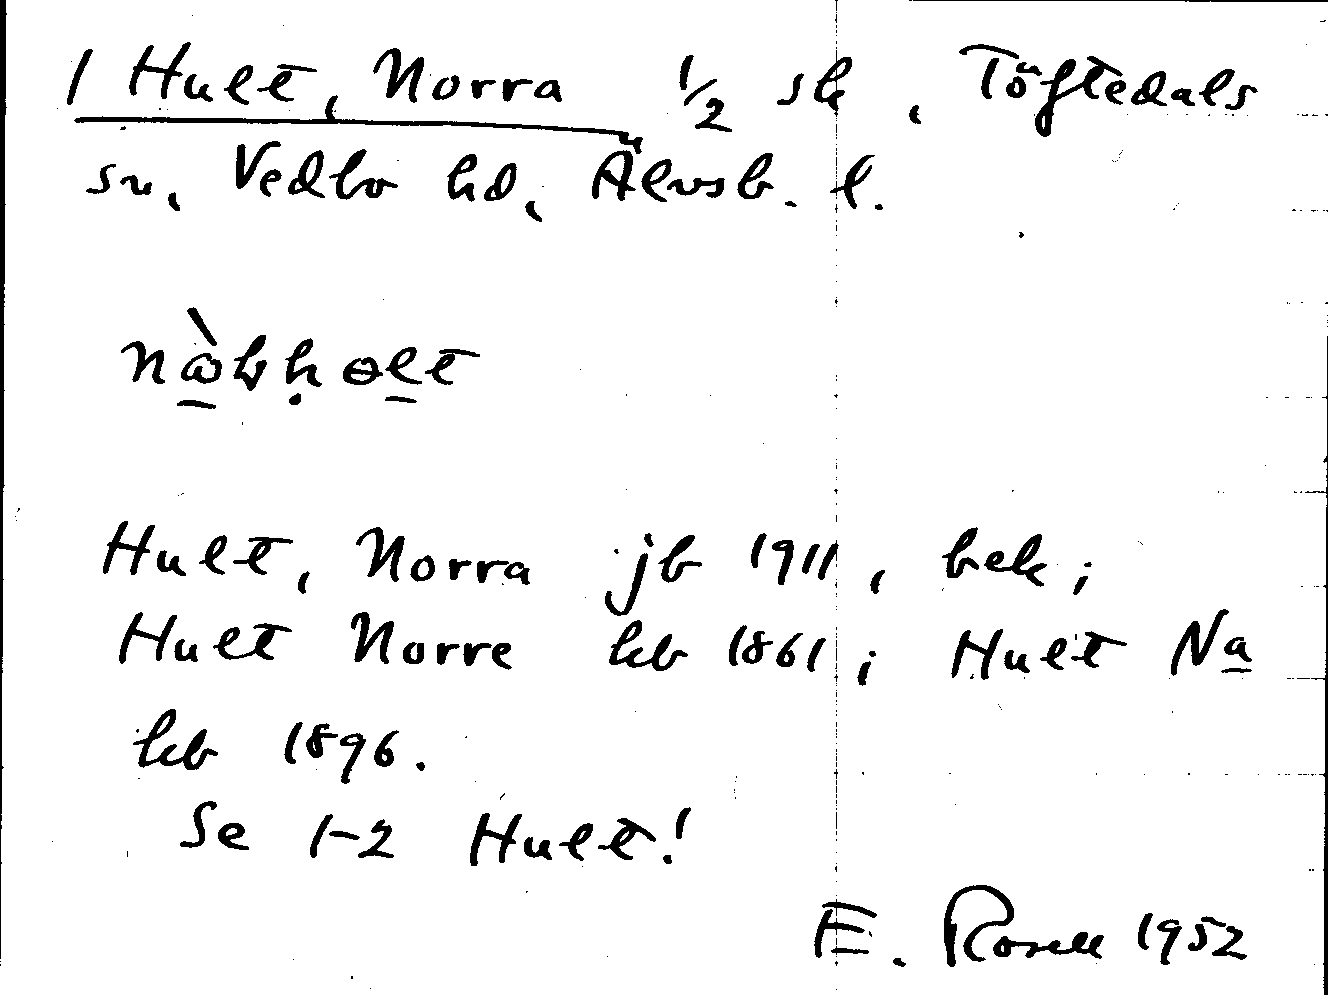 1 Hult, Norra 1/2 sk, Töftedals
sn, Vedbo hd, Älvsb. l.
Hult, Norra jb 1911, bek;
Hult Norre kb 1861; Hult Na
kb 1896.
Se 1-2 Hult!
E. Rosell 1952